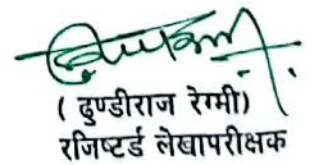 ( ढुण्डीराज रेग्मी)
रजिष्टर्ड लेखापरीक्षक